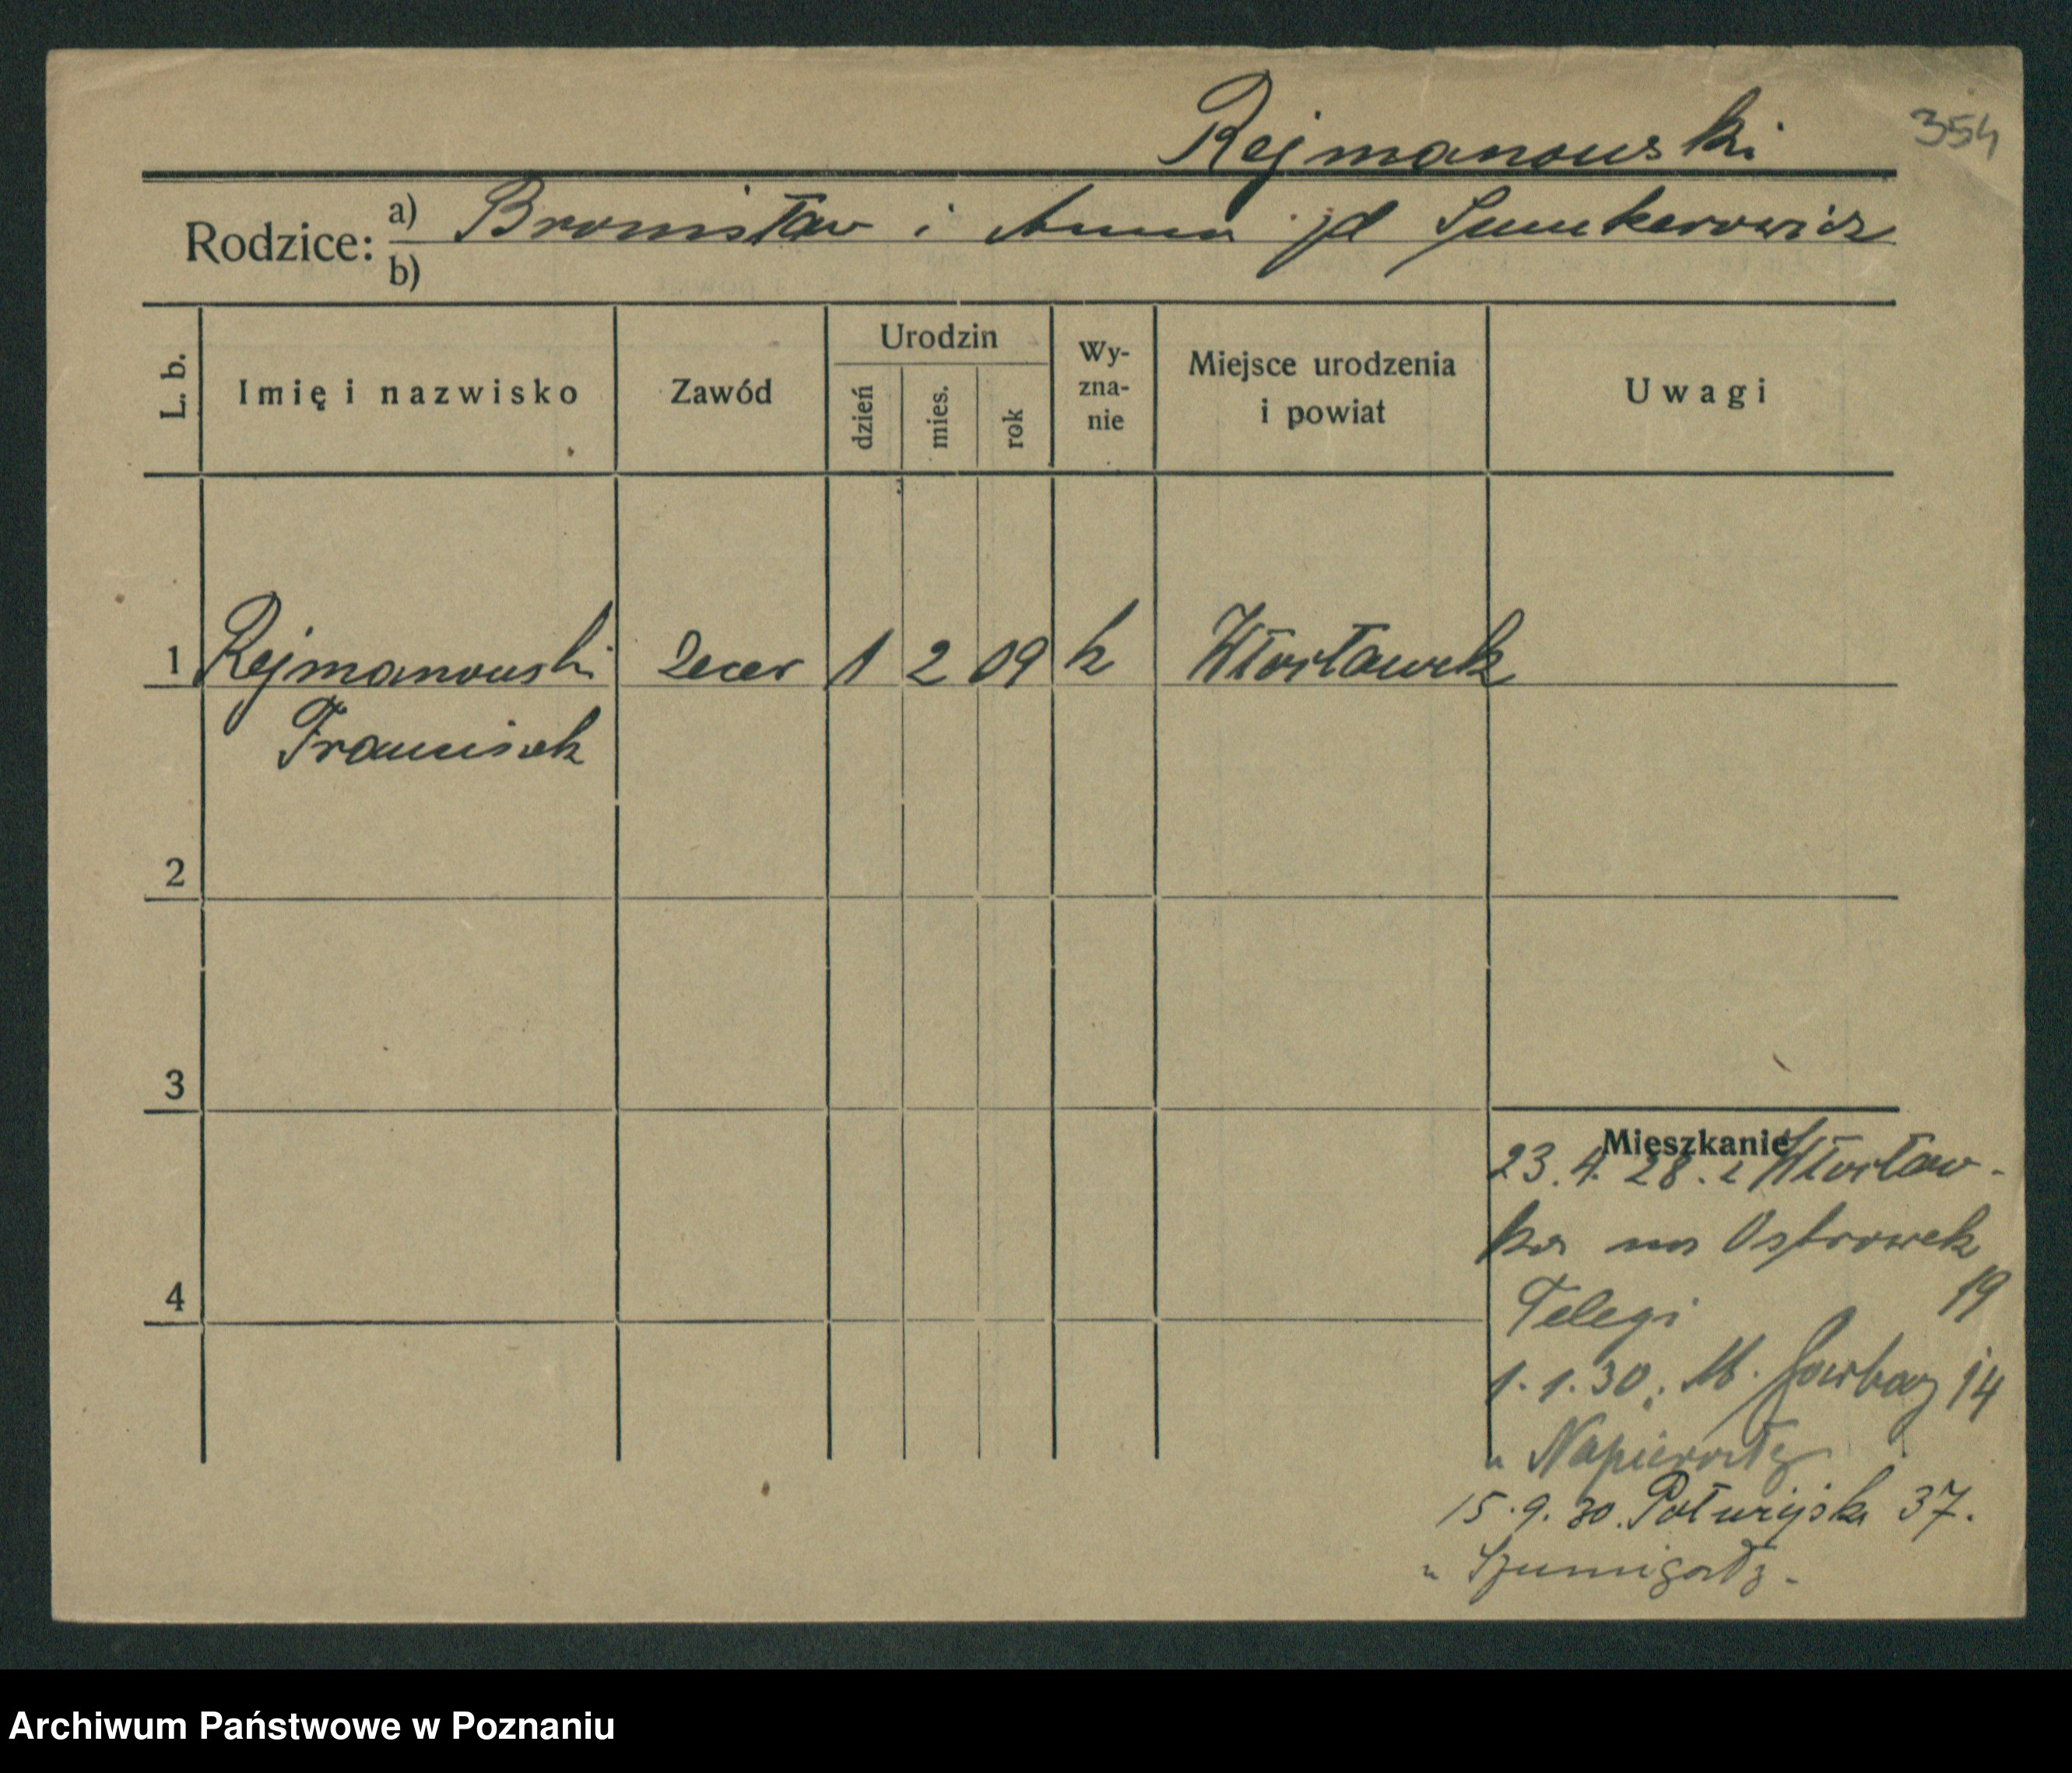 Rejmanowski
354
Rodzice: a) Bronisław i Anna
b)
L. b.
Imię i nazwisko
Zawód
Urodzin
dzień
mies.
rok
Wy-
zna-
nie
Miejsce urodzenia
i powiat
Uwagi
1 Rejmanowski Zecer 1 2 09 k Włocławek
Franciszek
2
3
4
Mieszkanie
23.4.28. z Włocław-
ka na Ostrowek
19
Telegi
1.1.30. M. Garbary 14
u
15.9.30. 37.
u
Archiwum Państwowe w Poznaniu